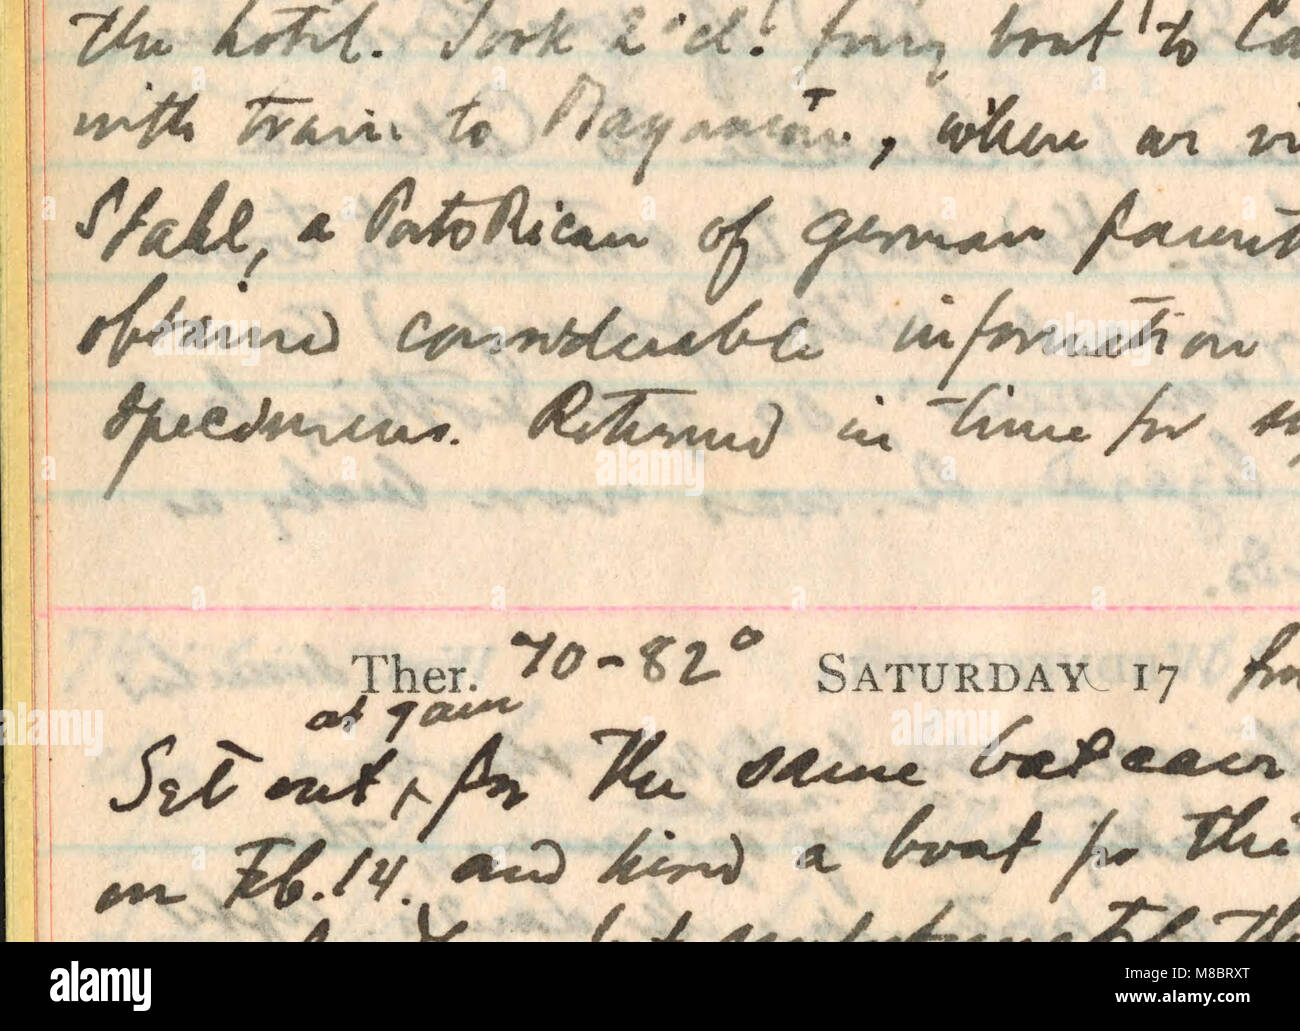 the hotel. Took 2 'cl. ferry boat to Ca
with train to Bayamon, where we vi
Stahl, a Porto Rican of German parent
obtained considerable information
specimens. Returned in time for su
Ther. 70-82° SATURDAY 17
at 9 am
Set out, for the same
on Feb. 14. and hired a boat for the
but unfortunately th
a
alamy
Image ID: M8BRXT
www.alamy.com